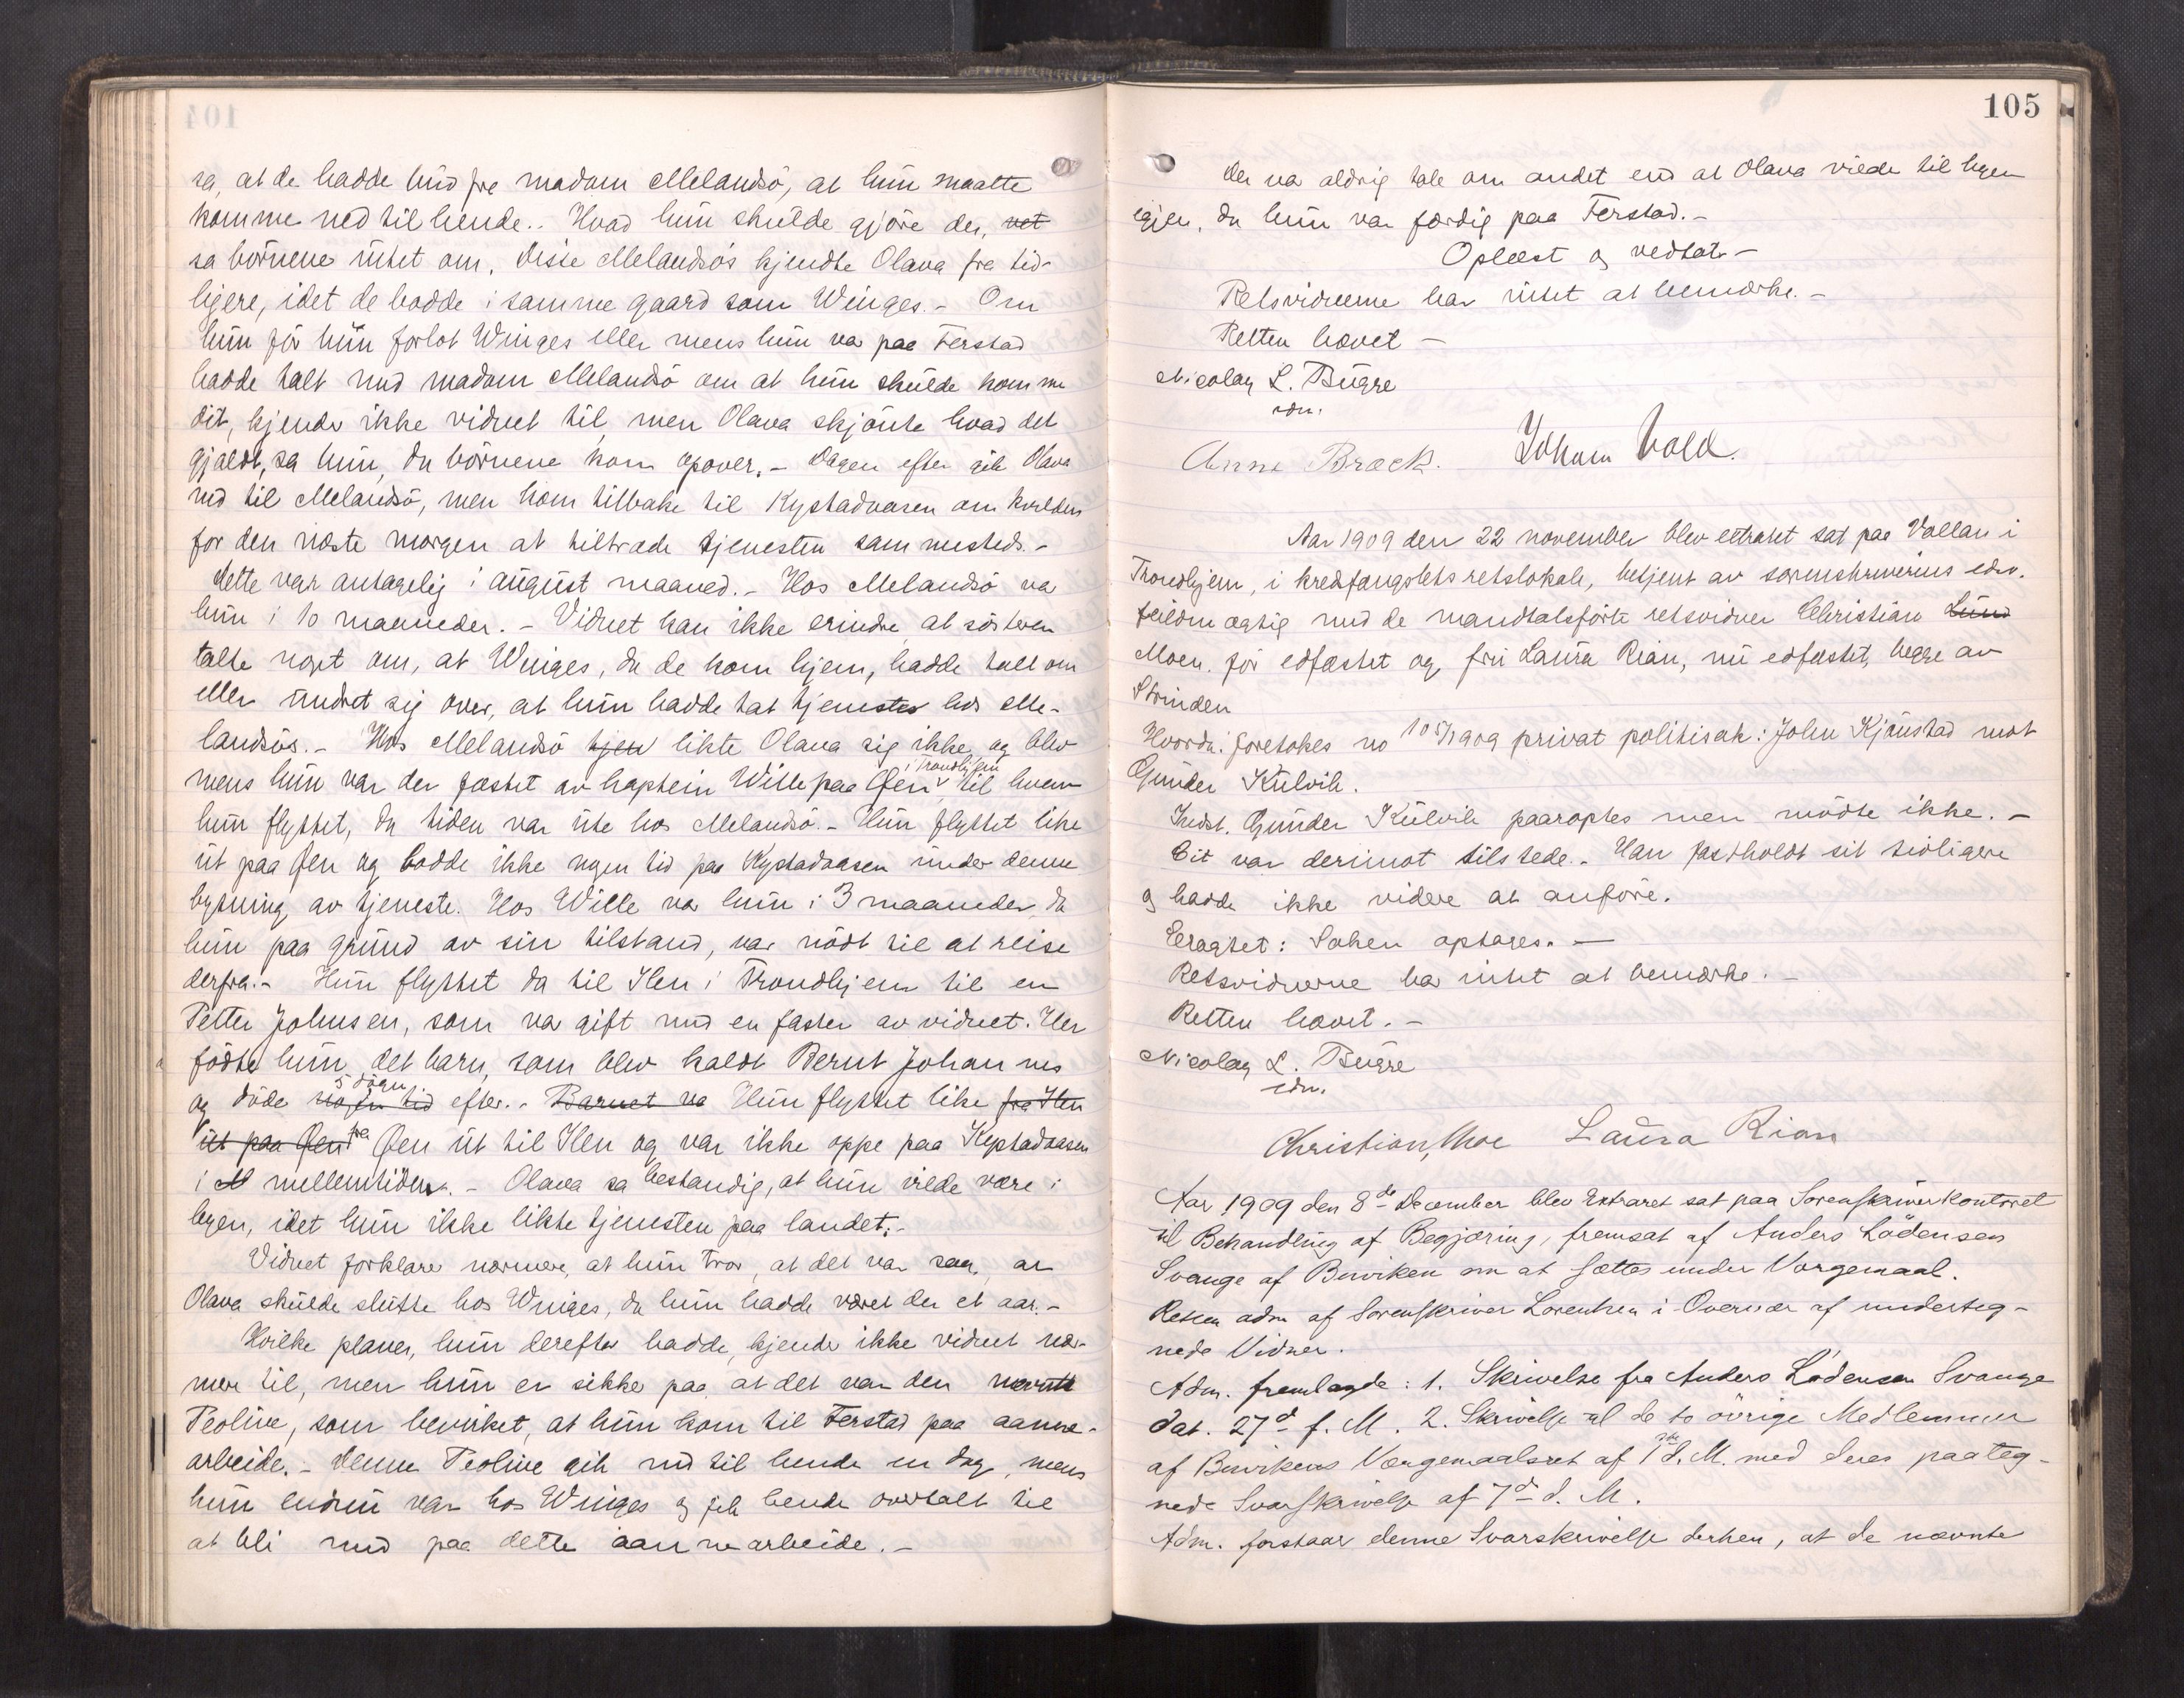 sa, at de hadde bud fra madam Melandsö, at hun maatte
komme ned til hende.. Hvad hun skulde gjöre der, vet
sa börnene intet om. Disse Melandsös kjendte Olava fra tid-
ligere, idet de bodde i samme gaard som Winges.- Om
hun för hun forlot Winges eller mens hun va paa Ferstad
hadde talt med madam Melandsö om at hun skulde komme
dit, kjender ikke vidnet til, men Olava skjönte hvad det
gjaldt, sa hun, da börnene kom opover.- Dagen efter gik Olava
ned til Melandsö, men kom tilbake til Kystadvasen om kvelden
for den næste morgen at tiltræde tjenesten sammesteds.-
Dette var antagelig i august maaned.- Hos Melandsö va
hun i 10 maaneder.- Vidnet kan ikke erindre at sösteren
talte noget om, at Winges, da de kom hjem, hadde talt om
eller undret sig over, at hun hadde tat tjeneste hos Me-
landsös.- Hos Melandsö tjen likte Olava sig ikke og blev
mens hun var der fæstet av kaptein Wille paa Øen i Trondhjem til hvem
hun flyttet, da tiden var ute hos Melandsö.- Hun flyttet like
ut paa Øen og bodde ikke nogen tid paa Kystadvasen under denne
bytning av tjeneste. Hos Wille va hun i 3 maaneder, da
hun paa grund av sin tilstand, var nödt til at reise
derfra.- Hun flyttet da til Ilen i Trondhjem til en
Petter Johnsen, som va gift med en faster av vidnet. Her
födte hun det barn, som blev kaldt Bernt Johannes
og döde nogen tid 5 dögn efter.- Barnet va Hun flyttet like fra Ilen
ut paa Øen fra Øen ut til Ilen og var ikke oppe paa Kystadvasen
i M mellemtiden.- Olava sa bestandig, at hun vilde være i
byen, idet hun ikke likte tjenesten paa landet.-
Vidnet forklarer nærmere, at hun tror, at det var saa, at
Olava skulde slutte hos Winges, da hun hadde været der et aar.-
Hvilke planer, hun derefter hadde, kjender ikke vidnet nær-
mere til, men hun er sikker paa at det var den nævnte
Peoline, som bevirket, at hun kom til Ferstad paa aanne-
arbeide.- Denne Peoline gik ned til hende en dag, mens
hun endnu var hos Winges og fik hende overtalt til
at bli med paa dette aannearbeide.-
105
Der va aldrig tale om andet end at Olava vilde til byen
igjen, da hun var færdig paa Ferstad.-
Oplæst og vedtat.-
Retsvidnerne har intet at bemærke.-
Retten hævet-
Nicolay L. Bugge
edm.
Anne Bræck. Johan Vold.
Aar 1909 den 22 november blev extraret sat paa Vollan i
Trondhjem, i kredsfængslets retslokale, betjent av sorenskriverens edsv.
fuldmægtig med de mandtalsförte retsvidner Christian Lund
Moen för edfæstet og fru Laura Rian, nu edfæstet, begge av
Strinden
Hvorda: foretokes no 105/1909 privat politisak: John Kjönstad mot
Gunder Kulvik.
Indst. Gunder Kulvik paaroptes men mödte ikke.-
Cit var derimot tilstede.- Han fastholdt sit tidligere
og hadde ikke videre at anföre.
Eragtet: Saken optages.-
Retsvidnerne har intet at bemærke.-
Retten hævet.-
Nicolay L. Bugge
edm.
Christian, Moe Laura Rian
Aar 1909 den 8de December blev Extraret sat paa Sorenskriverkontoret
til Behandling af Begjæring, fremsat af Anders Lödensen
Svange af Buviken om at sættes under Værgemaal.
Retten adm af Sorenskriver Lorentzen i Overvær af underteg-
nede Vidner.
Adm. fremlagde: 1. Skrivelse fra Anders Lödensen Svange
dat. 27d f. M. 2. Skrivelse til de to övrige Medlemmer
af Buvikens Værgemaalsret af 1ste d. M. med deres paateg-
nede Svarskrivelse af 7d d. M.
Adm. forstaar denne Svarskrivelse derhen, at de nævnte